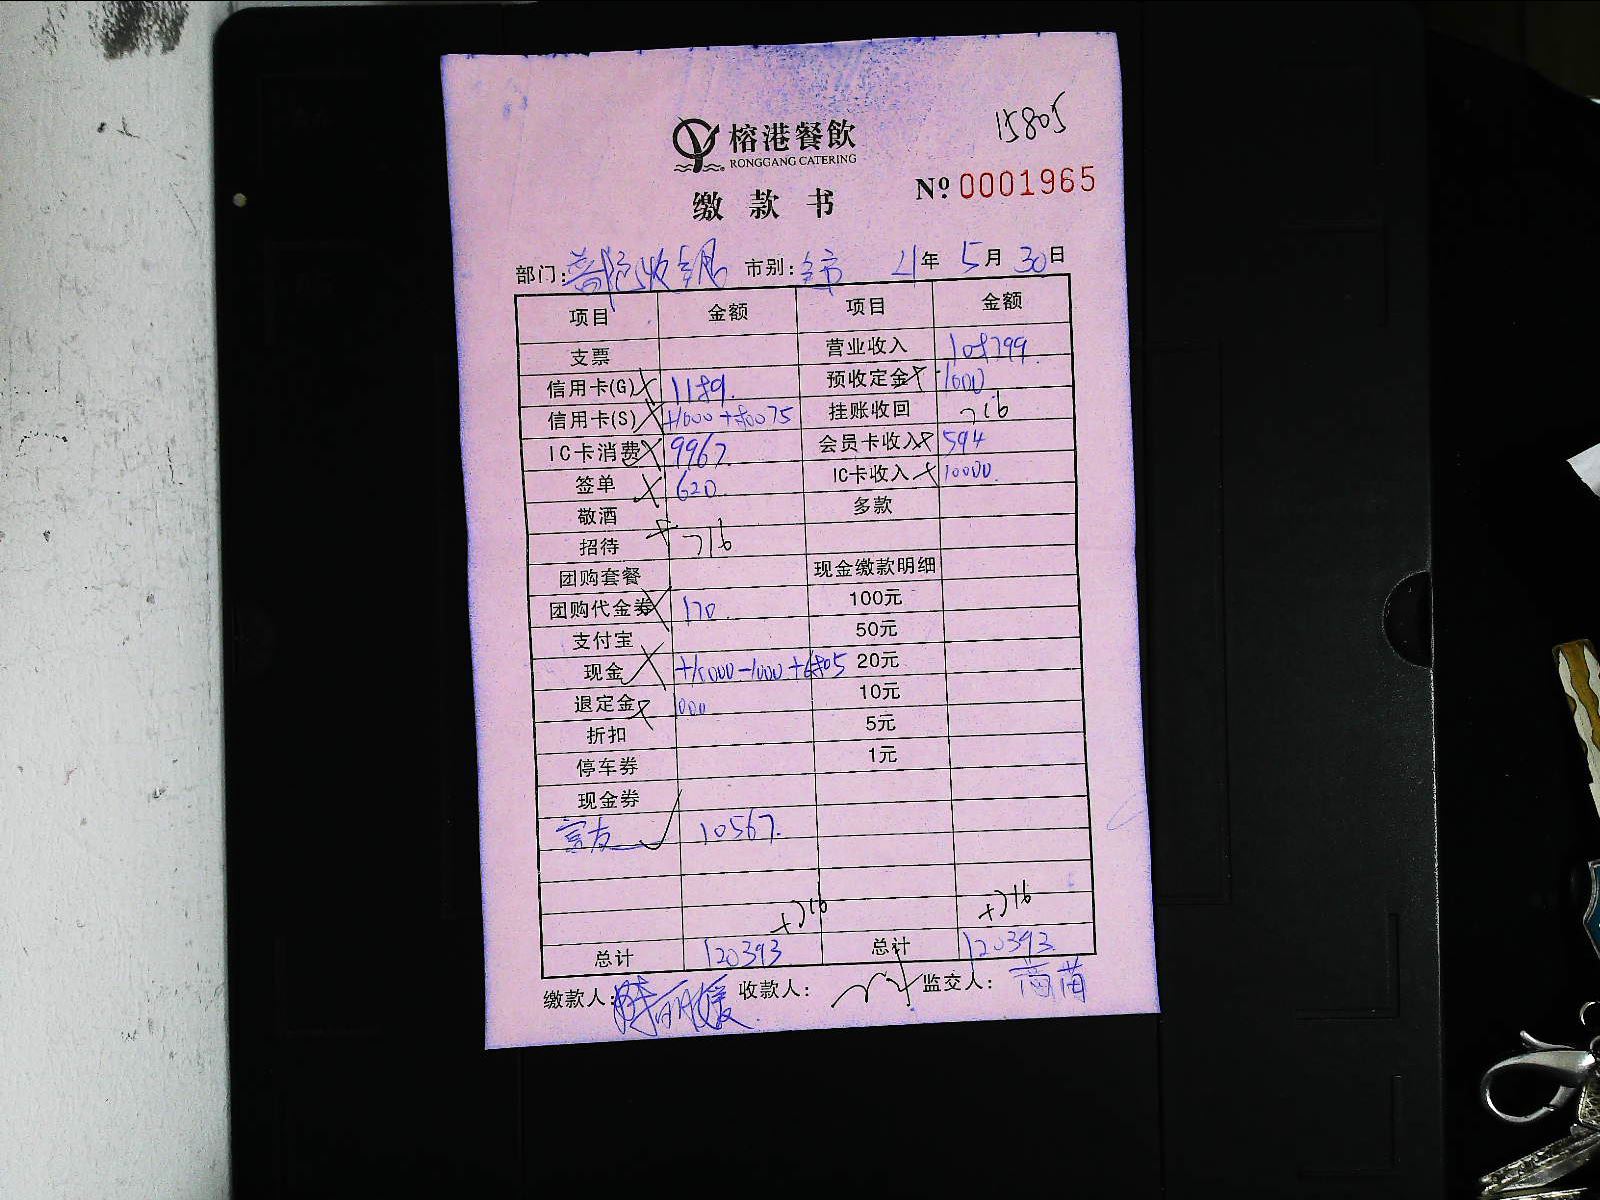 15805
榕港餐飲
RONGGANG CATERING
缴款书
Nº 0001965
部门: 市别: 全市 21年 5月 30日
项目 金额 项目 金额
支票 营业收入 108799
信用卡(G) 1189. 预收定金 1000
信用卡(S) +1000+80075 挂账收回 716
IC卡消费 9967. 会员卡收入 594
签单 620. IC卡收入 10000.
敬酒 多款
招待 716
团购套餐 现金缴款明细
团购代金券 170. 100元
支付宝 50元
现金 +10000-1000+6805 20元
退定金 1000 10元
折扣 5元
停车券 1元
现金券
10567.
+716 +716
总计 120393 总计 120393.
缴款人: 收款人: 监交人: